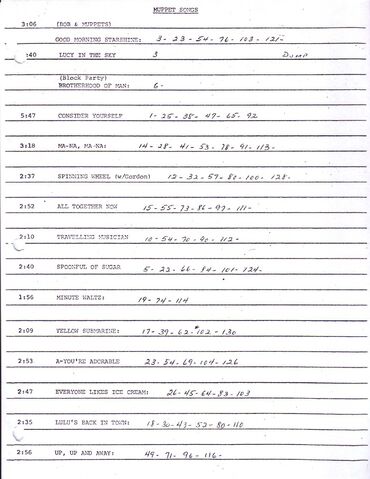 MUPPET SONGS
3:06 (BOB & MUPPETS)
GOOD MORNING STARSHINE: 3-23-54-76-103-121-
:40 LUCY IN THE SKY 3 Dump
(Block Party)
BROTHERHOOD OF MAN: 6-
5:47 CONSIDER YOURSELF 1-25-38-47-65-92
3:18 MA-NA, MA-NA: 14-28-41-53-78-91-113-
2:37 SPINNING WHEEL (w/Gordon) 12-32-57-80-100-128-
2:52 ALL TOGETHER NOW 15-55-73-86-97-111-
2:10 TRAVELLING MUSICIAN 10-54-70-90-112-
2:40 SPOONFUL OF SUGAR 5-22-66-84-101-124-
1:56 MINUTE WALTZ: 19-74-114
2:09 YELLOW SUBMARINE: 17-39-62-*102-130
2:53 A-YOU'RE ADORABLE 23-54-69-104-126
2:47 EVERYONE LIKES ICE CREAM: 26-45-64-83-103
2:35 LULU'S BACK IN TOWN: 18-30-43-52-80-110
2:56 UP, UP AND AWAY: 49-71-96-116-